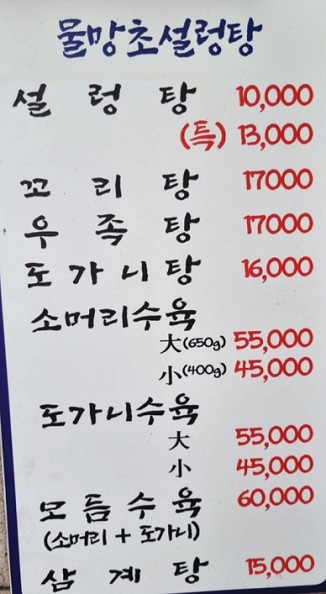 물망초설렁탕
설 렁 탕 10,000
(특) 13,000
꼬 리 탕 17000
우 족 탕 17000
도 가 니 탕 16,000
소머리수육
大(650g) 55,000
小(400g) 45,000
도가니수육
大 55,000
小 45,000
모 듬 수 육 60,000
(소머리 + 도가니)
삼 계 탕 15,000